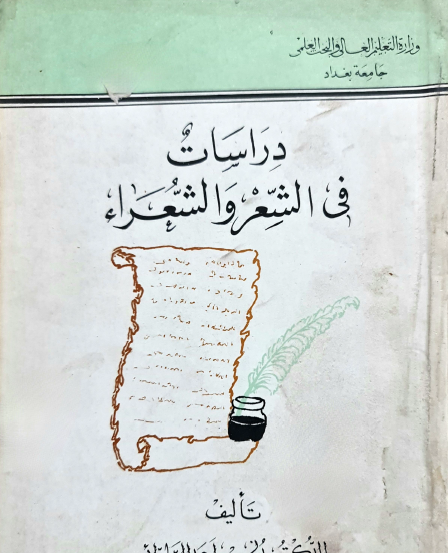 وزارة التعليم العالي والبحث العلمي
جامعة بغداد
دِرَاسَاتٌ
في الشِّعْرِ وَالشُّعَرَاء
تأليف